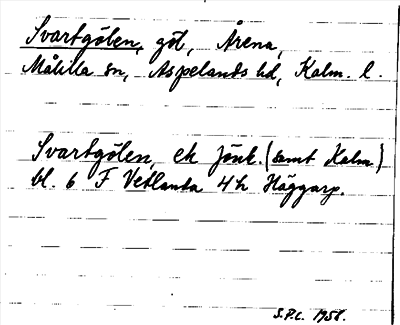 Svartgölen, göl, Årena,
Målilla sn, Aspelands hd, Kalm. l.
Svartgölen, ek Jönk. (samt Kalm.)
bl. 6 F Vetlanda 4h Häggarp.
S.P.C. 1958.